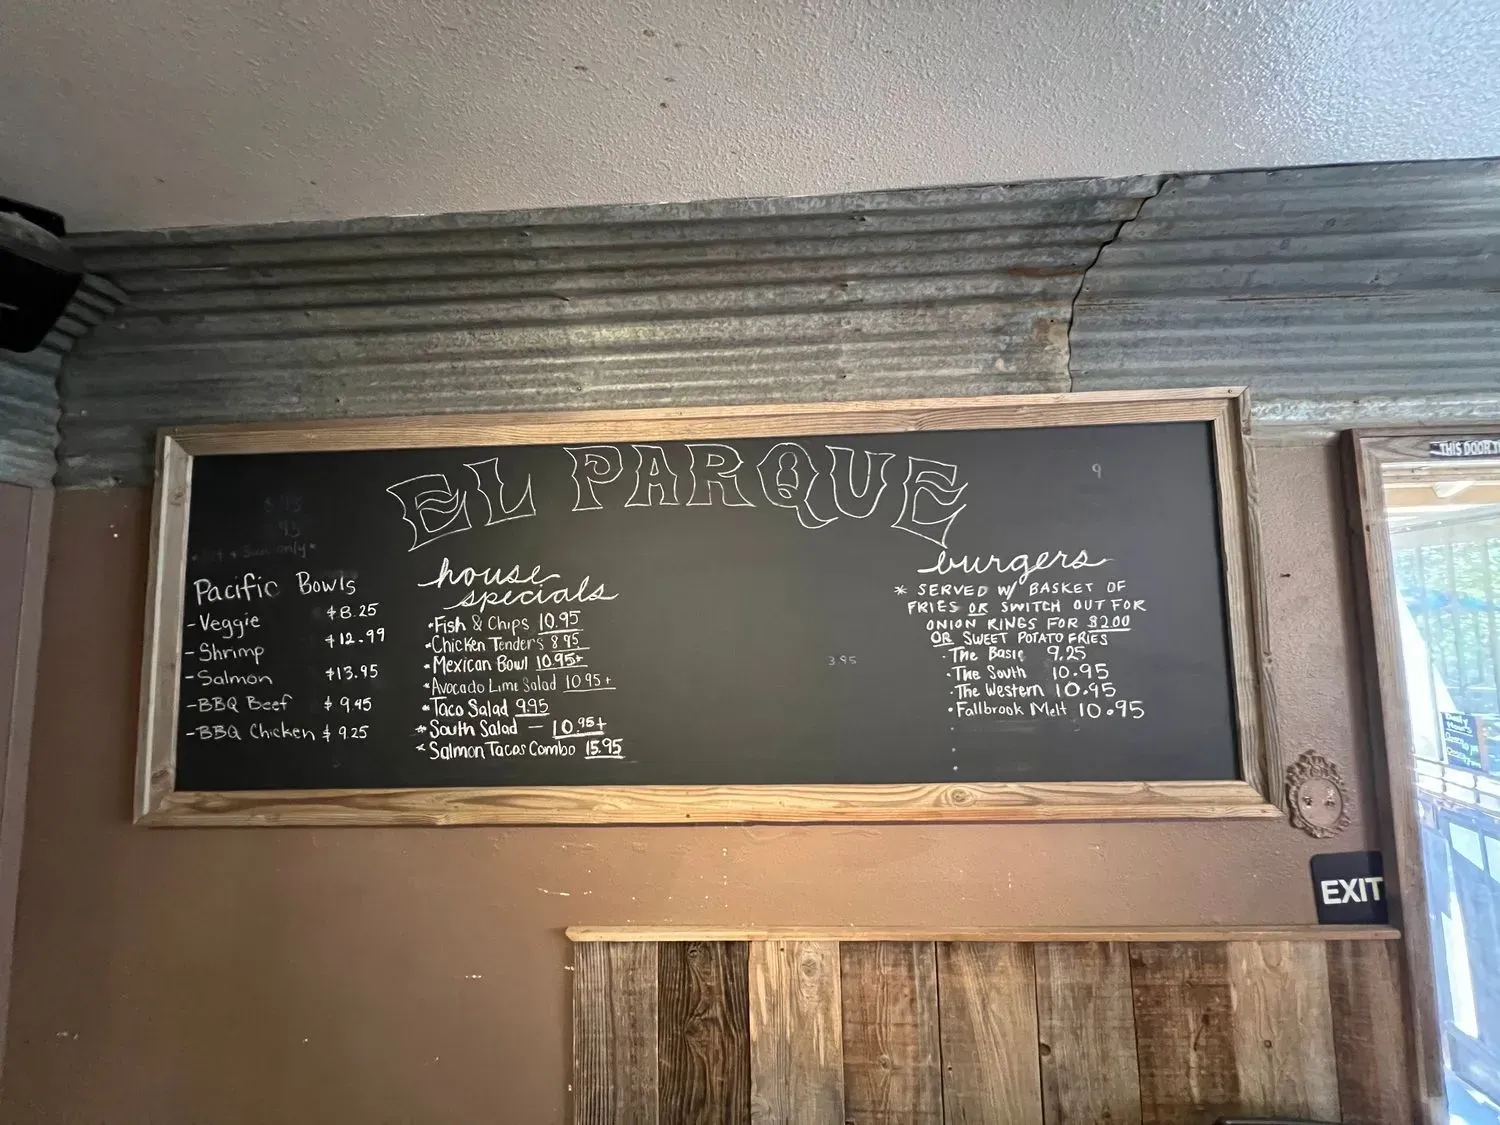 EL PARQUE
9
only*
Pacific Bowls
-Veggie $8.25
-Shrimp $12.99
-Salmon $13.95
-BBQ Beef $9.45
-BBQ Chicken $9.25
house
specials
•Fish & Chips 10.95
•Chicken Tenders 8.95
•Mexican Bowl 10.95+
•Avocado Lime Salad 10.95+
•Taco Salad 9.95
*South Salad — 10.95+
*Salmon Tacos Combo 15.95
3.95
burgers
* SERVED W/ BASKET OF
FRIES OR SWITCH OUT FOR
ONION RINGS FOR $2.00
OR SWEET POTATO FRIES
•The Basic 9.25
•The South 10.95
•The Western 10.95
•Fallbrook Melt 10.95
THIS DOOR
EXIT